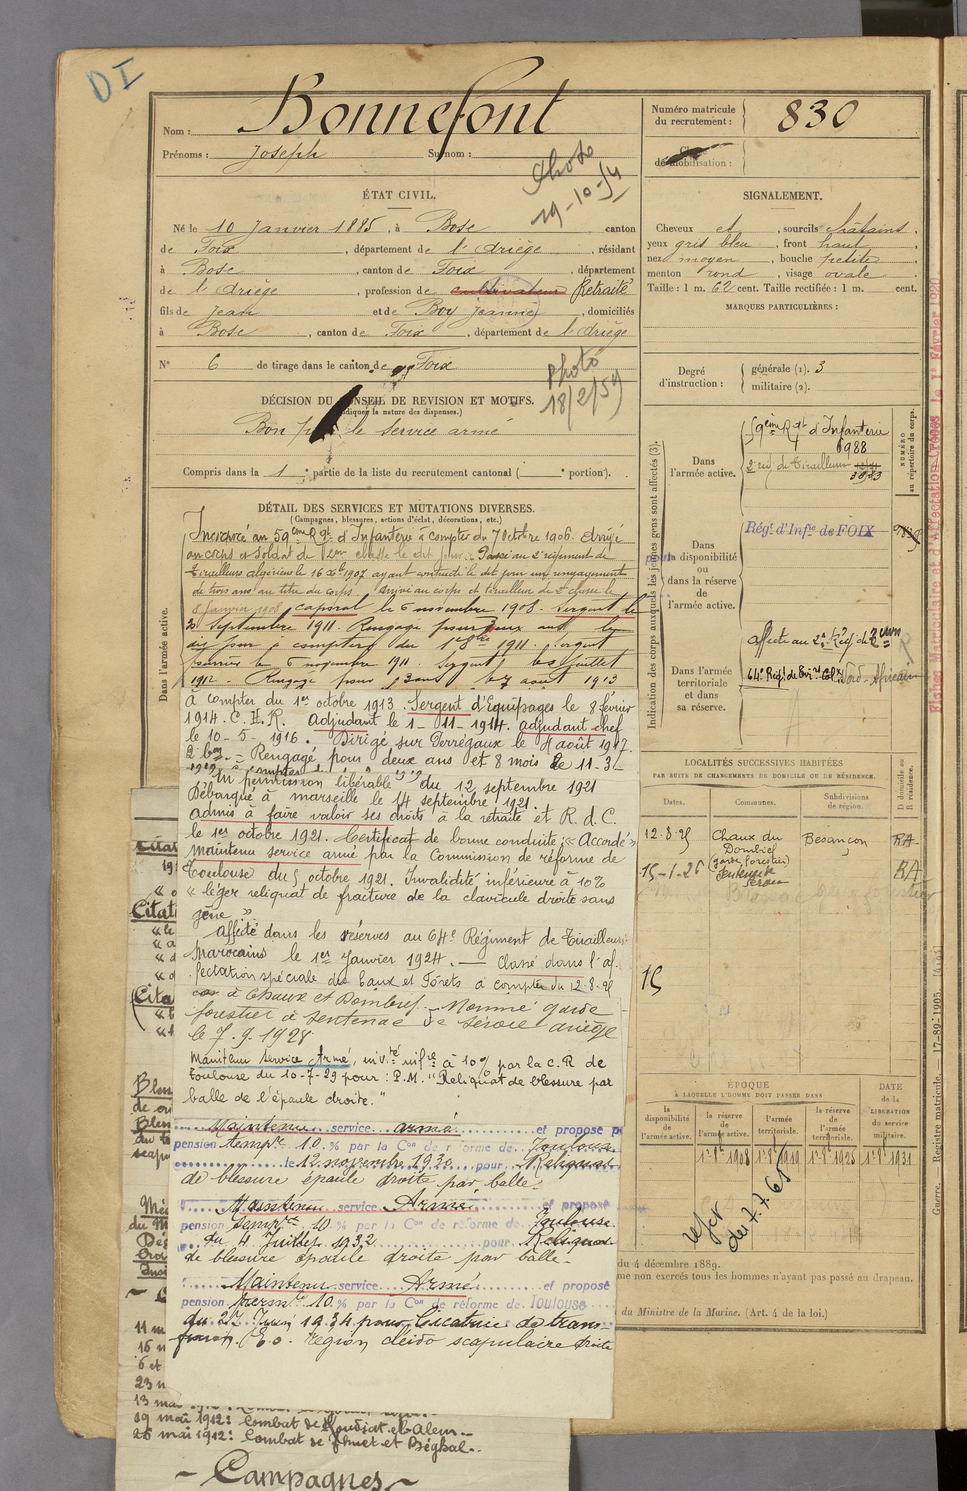 DI
Nom : Bonnefont
Prénoms : Joseph Surnom :
Photo
19-10-54
ÉTAT CIVIL.
Né le 10 Janvier 1885, à Bosc canton
de Foix, département de l'Ariège, résidant
à Bosc, canton de Foix, département
de l'Ariège, profession de cultivateur Retraité
fils de Jean et de Boy Jeanne, domiciliés
à Bosc, canton de Foix, département de l'Ariège
N° 6 de tirage dans le canton de Foix
Photo
18/2/59
DÉCISION DU CONSEIL DE REVISION ET MOTIFS.
(Indiquer la nature des dispenses.)
Bon pour le service armé
Compris dans la 1 partie de la liste du recrutement cantonal ( portion).
DÉTAIL DES SERVICES ET MUTATIONS DIVERSES.
(Campagnes, blessures, actions d'éclat, décorations, etc.)
Dans l'armée active.
Incorporé au 59ème Rgt d'Infanterie à compter du 7 Octobre 1906. Arrivé
au corps et soldat de 2eme classe le dit jour. Passé au 2e régiment de
tirailleurs algériens le 16 Xbre 1907 ayant contracté le dit jour un rengagement
de trois ans au titre du corps. Arrivé au corps et tirailleur de 2e classe le
8 Janvier 1908 caporal le 6 novembre 1908. Sergent le
30 Septembre 1911. Rengagé pour deux ans le
dit jour à compter du 1er 8bre 1911. Sergent
fourrier le 6 novembre 1911. Sergent le juillet
1912 - Rengagé pour 3 ans le 7 août 1913
à compter du 1er octobre 1913. Sergent d'Equipages le 8 février
1914. C.H.R. Adjudant le 1-11-1914. adjudant chef
le 10-5-1916. Dirigé sur Perrégaux le 4 août 1917.
Rengagé pour deux ans et 8 mois le 11-3-
1919 à compter
En permission libérable du 12 septembre 1921
Débarqué à marseille le 14 septembre 1921.
admis à faire valoir ses droits à la retraite et R.d.C.
le 1er octobre 1921. Certificat de bonne conduite "Accordé"
Maintenu service armé par la Commission de réforme de
Toulouse du 5 octobre 1921. Invalidité inférieure à 10%
" léger reliquat de fracture de la clavicule droite sans
gêne."
Affecté dans les réserves au 64e Régiment de Tirailleurs
Marocains le 1er Janvier 1924. — Classé dans l'af-
fectation spéciale des Eaux et Forêts à compter du 12-8-25
à Chaux et Dombief - Nommé garde
forestier à Sentenac de Sérou ariège
le 7.9.1928
Maintenu Service Armé, invté infre à 10% par la C.R de
Toulouse du 10-7-29 pour : P.M. "Reliquat de blessure par
balle de l'épaule droite."
Maintenu service armé et propose
pension tempre 10.% par la Con de réforme de Toulouse
le 12 novembre 1930 pour Reliquat
de blessure épaule droite par balle
Maintenu service Armé et propose
pension tempre 10.% par la Con de réforme de Toulouse
du 4 Juillet 1932 pour Reliquat
de blessure épaule droite par balle
Maintenu service Armé et propose
pension permte 10.% par la Con de réforme de Toulouse
du 27 Juin 1934 pour Cicatrice de trans-
fixion E.O. région cleido scapulaire droite
Numéro matricule du recrutement : 830
Classe de mobilisation :
SIGNALEMENT.
Cheveux et, sourcils châtains,
yeux gris bleu, front haut,
nez moyen, bouche petite,
menton rond, visage ovale.
Taille : 1 m. 62 cent. Taille rectifiée : 1 m. cent.
MARQUES PARTICULIÈRES :
Degré d'instruction : générale (1). 3
militaire (2).
Indication des corps auxquels les jeunes gens sont affectés (3).
NUMÉRO au répertoire du corps.
Dans l'armée active.
59ème Rgt d'Infanterie
6988
2e régt de Tirailleurs
Dans la disponibilité ou dans la réserve de l'armée active.
Régt d'Infie de FOIX
Dans l'armée territoriale et dans sa réserve.
64e Régt de Nord-Africain
Fichier Matriculaire et d'Affectation Créées le 1er Février 1921
LOCALITÉS SUCCESSIVES HABITÉES
PAR SUITE DE CHANGEMENTS DE DOMICILE OU DE RÉSIDENCE.
Dates. Communes. Subdivisions de région. D domicile ou R résidence.
12-8-25 Chaux du Dombief (garde forestier) Besançon RA
15-1-26 Sentenac Sérou RA
15
ÉPOQUE
À LAQUELLE L'HOMME DOIT PASSER DANS
DATE de la LIBÉRATION du service militaire.
la disponibilité de l'armée active. la réserve de l'armée active. l'armée territoriale. la réserve de l'armée territoriale.
1er 8bre 1908 1er 8bre 1919 1er 8bre 1925 1er 8bre 1931
du 7.7.65
du 4 décembre 1889.
me non exercés tous les hommes n'ayant pas passé au drapeau.
du Ministre de la Marine. (Art. 4 de la loi.)
Guerre. Registre matricule. — 17-89-1905. [4464]
Citat
Citat
Cita
Bless
Bless
11 m
16 n
6 et
23 n
13 mai
19 mai 1912 : Combat de
26 mai 1912 : Combat de
~ Campagnes ~